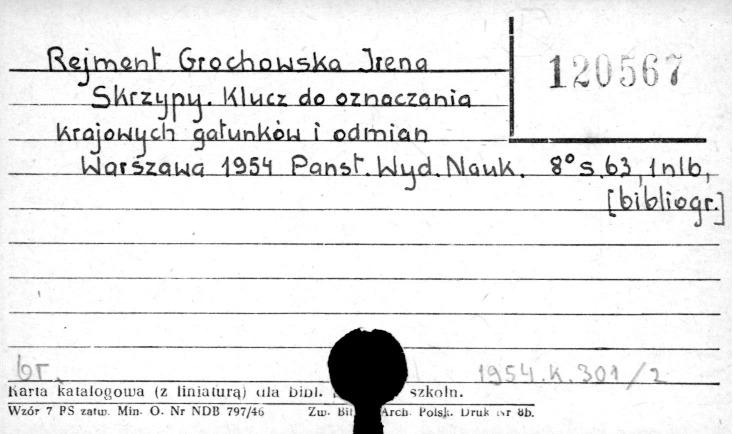 Rejment Grochowska Irena
120567
Skrzypy. Klucz do oznaczania
krajowych gatunków i odmian
Warszawa 1954 Panst. Wyd. Nauk. 8° s. 63, 1 nlb,
[bibliogr.]
br. 1954.K.301/2
Karta katalogowa (z liniaturą) dla bibl. szkoln.
Wzór 7 PS zatw. Min. O. Nr NDB 797/46 Zw. Arch. Polsk. Druk Nr 8b.